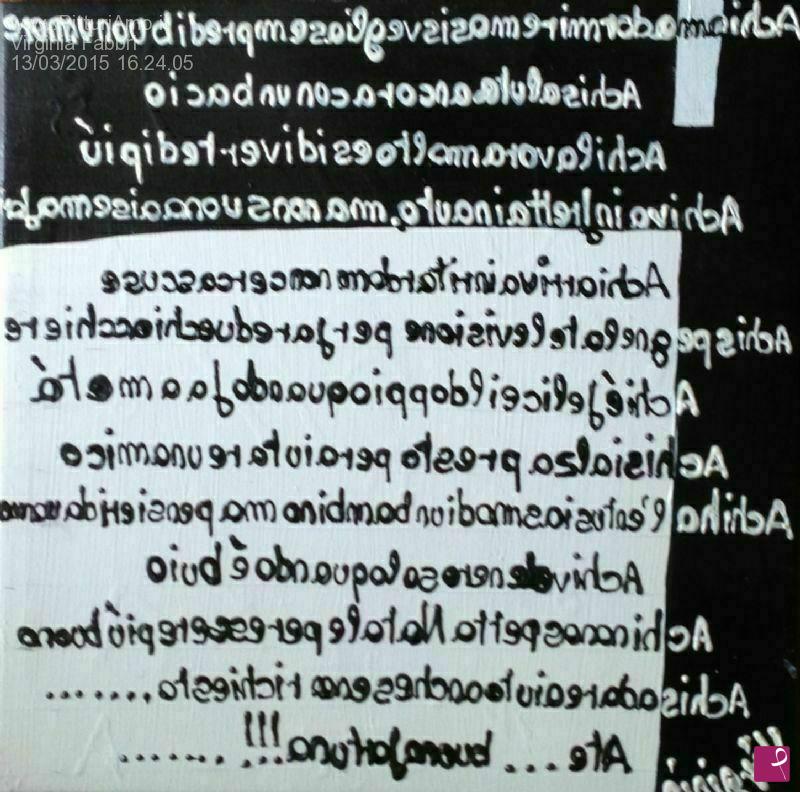 PitturiAmo
Virginia Fabbri
13/03/2015 16.24.05
A chi ama dormire ma si sveglia sempre di buon umore
A chi saluta ancora con un bacio
A chi lavora molto e si diverte di più
A chi va in fretta in auto, ma non suona ai semafori
A chi arriva in ritardo ma non cerca scuse
A chi spegne la televisione per fare due chiacchiere
A chi è felice il doppio quando fa a metà
A chi si alza presto per aiutare un amico
A chi ha l'entusiasmo di un bambino ma pensieri da uomo
A chi vede nero solo quando è buio
A chi non aspetta Natale per essere più buono
A chi sa dare aiuto anche se non richiesto........
A te ... buona fortuna!!! .......